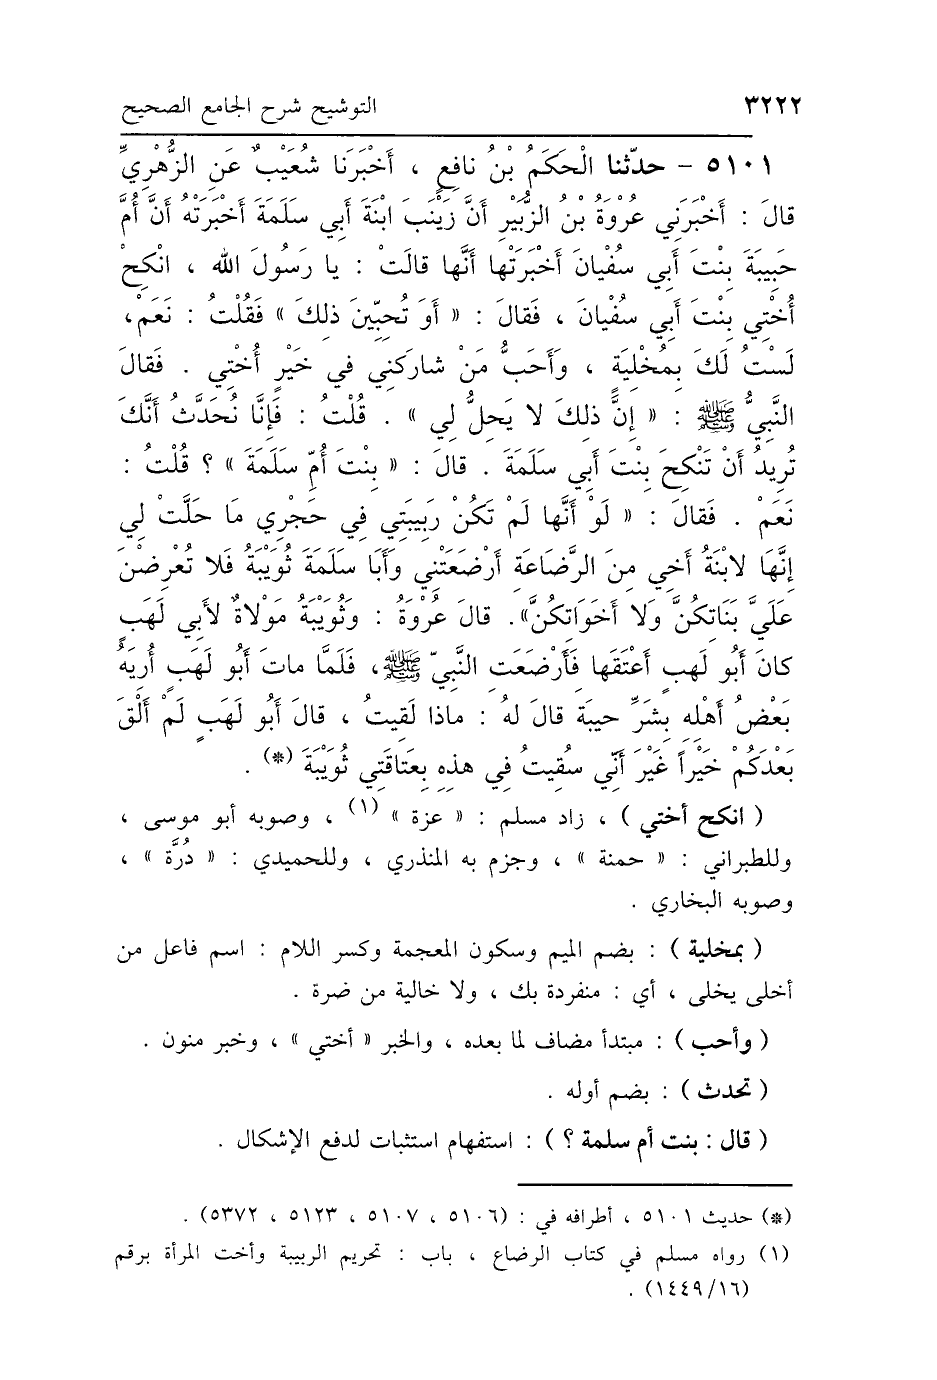 ٣٢٢٢ التوشيح شرح الجامع الصحيح
٥١٠١ - حدّثنا الْحَكَمُ بْنُ نافِعٍ ، أَخْبَرَنَا شُعَيْبٌ عَنِ الزُّهْرِيِّ
قالَ : أَخْبَرَنِي عُرْوَةُ بْنُ الزُّبَيْرِ أَنَّ زَيْنَبَ ابْنَةَ أَبِي سَلَمَةَ أَخْبَرَتْهُ أَنَّ أُمَّ
حَبِيبَةَ بِنْتَ أَبِي سُفْيانَ أَخْبَرَتْها أَنَّها قالَتْ : يا رَسُولَ الله ، انْكِحْ
أُخْتِي بِنْتَ أَبِي سُفْيانَ ، فَقالَ : « أَوَ تُحِبِّينَ ذلِكَ » فَقُلْتُ : نَعَمْ،
لَسْتُ لَكَ بِمُخْلِيَةٍ ، وَأَحَبُّ مَنْ شارَكَنِي في خَيْرٍ أُخْتِي . فَقالَ
النَّبِيُّ ﷺ : « إِنَّ ذلِكَ لا يَحِلُّ لِي » . قُلْتُ : فَإِنَّا نُحَدَّثُ أَنَّكَ
تُرِيدُ أَنْ تَنْكِحَ بِنْتَ أَبِي سَلَمَةَ . قالَ : « بِنْتَ أُمِّ سَلَمَةَ » ؟ قُلْتُ :
نَعَمْ . فَقالَ : « لَوْ أَنَّها لَمْ تَكُنْ رَبِيبَتِي فِي حَجْرِي مَا حَلَّتْ لِي
إِنَّهَا لابْنَةُ أَخِي مِنَ الرَّضَاعَةِ أَرْضَعَتْنِي وَأَبَا سَلَمَةَ ثُوَيْبَةُ فَلا تَعْرِضْنَ
عَلَيَّ بَنَاتِكُنَّ وَلا أَخَوَاتِكُنَّ». قالَ عُرْوَةُ : وَثُوَيْبَةُ مَوْلاةٌ لأَبِي لَهَبٍ
كانَ أَبُو لَهَبٍ أَعْتَقَها فَأَرْضَعَتِ النَّبِيّ ﷺ، فَلَمَّا ماتَ أَبُو لَهَبٍ أُرِيَهُ
بَعْضُ أَهْلِهِ بِشَرِّ حِيبَة قالَ لهُ : ماذا لَقِيتُ ، قالَ أَبُو لَهَبٍ لَمْ أَلْقَ
بَعْدَكُمْ خَيْراً غَيْرَ أَنِّي سُقِيتُ فِي هذِهِ بِعَتاقَتِي ثُوَيْبَةَ (*) .
( انكح أختي ) ، زاد مسلم : « عزة » (١) ، وصوبه أبو موسى ،
وللطبراني : « حمنة » ، وجزم به المنذري ، وللحميدي : « دُرَّة » ،
وصوبه البخاري .
( بمخلية ) : بضم الميم وسكون المعجمة وكسر اللام : اسم فاعل من
أخلى يخلى ، أي : منفردة بك ، ولا خالية من ضرة .
( وأحب ) : مبتدأ مضاف لما بعده ، والخبر « أختي » ، وخبر منون .
( تحدث ) : بضم أوله .
( قال : بنت أم سلمة ؟ ) : استفهام استثبات لدفع الإشكال .
(*) حديث ٥١٠١ ، أطرافه في : (٥١٠٦ ، ٥١٠٧ ، ٥١٢٣ ، ٥٣٧٢) .
(١) رواه مسلم في كتاب الرضاع ، باب : تحريم الربيبة وأخت المرأة برقم
(١٤٤٩/١٦) .